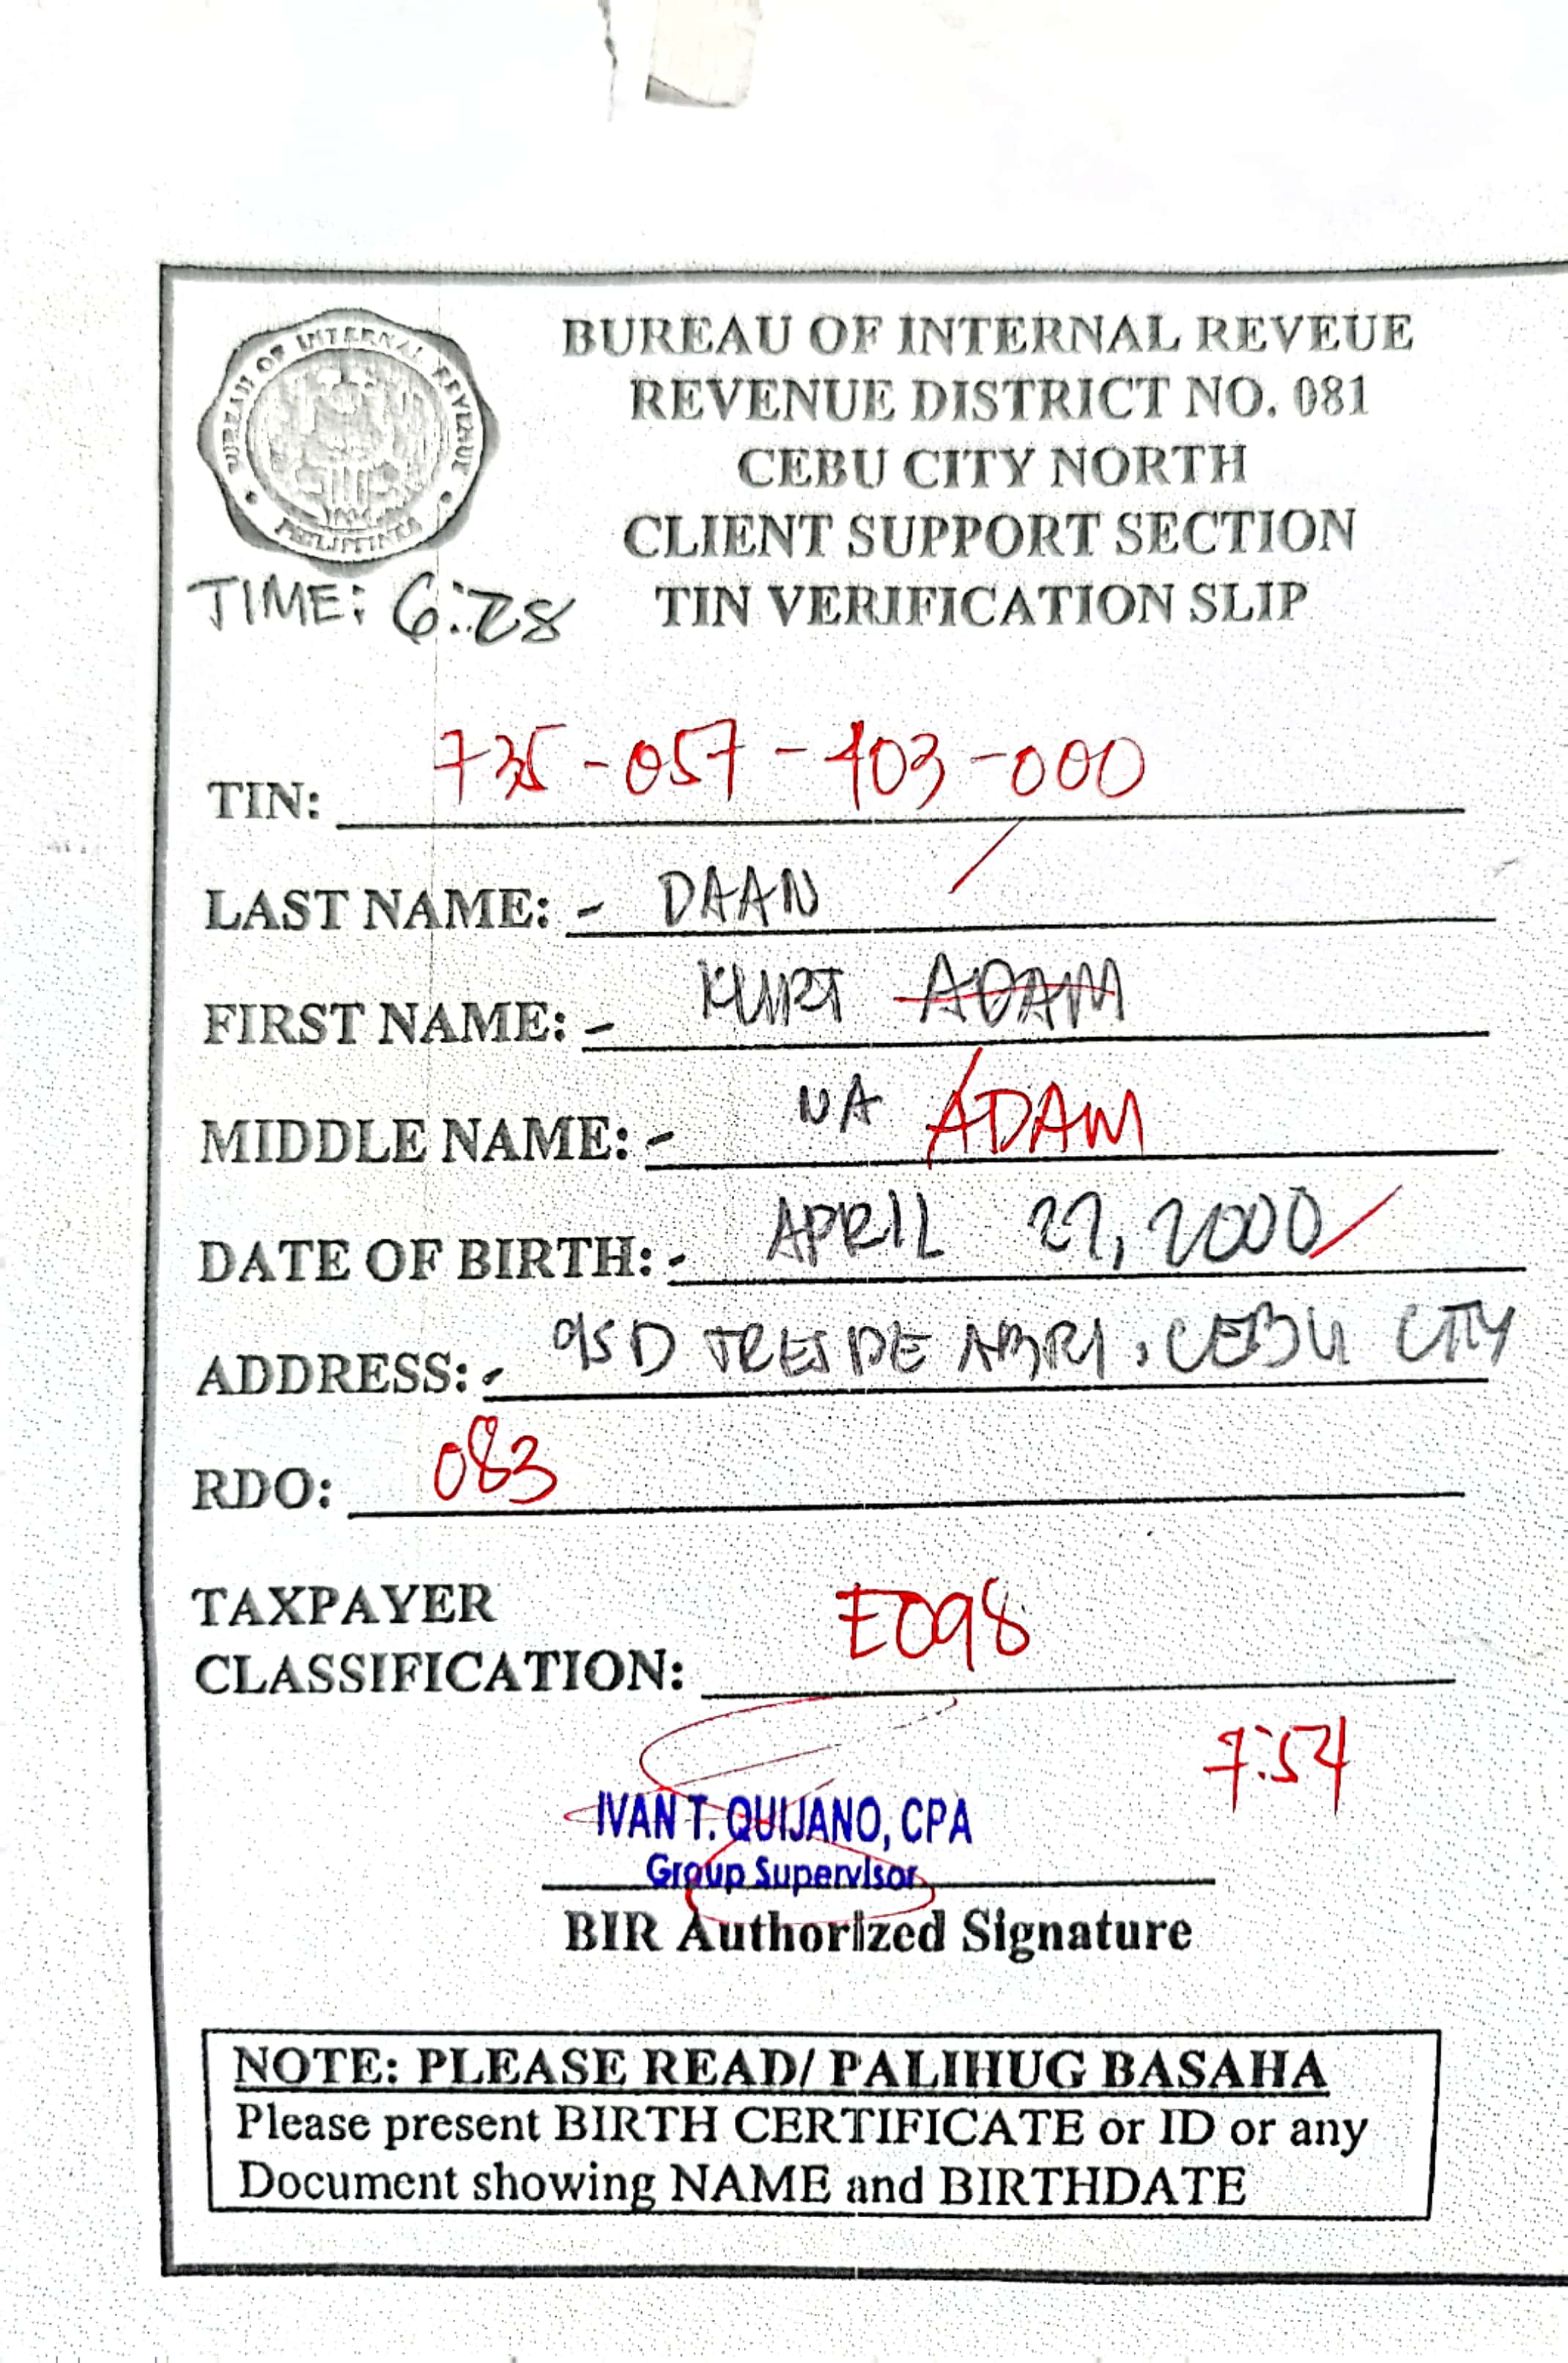 BUREAU OF INTERNAL REVENUE
PHILIPPINES
BUREAU OF INTERNAL REVEUE
REVENUE DISTRICT NO. 081
CEBU CITY NORTH
CLIENT SUPPORT SECTION
TIN VERIFICATION SLIP
TIME: 6:28
TIN: 735-057-403-000
LAST NAME: - DAAN
FIRST NAME: - KURT ADAM
MIDDLE NAME: - NA ADAM
DATE OF BIRTH: - APRIL 27, 2000
ADDRESS: - 95D TRES DE ABRI, CEBU CITY
RDO: 083
TAXPAYER
CLASSIFICATION: E098
7:54
IVAN T. QUIJANO, CPA
Group Supervisor
BIR Authorized Signature
NOTE: PLEASE READ/ PALIHUG BASAHA
Please present BIRTH CERTIFICATE or ID or any
Document showing NAME and BIRTHDATE